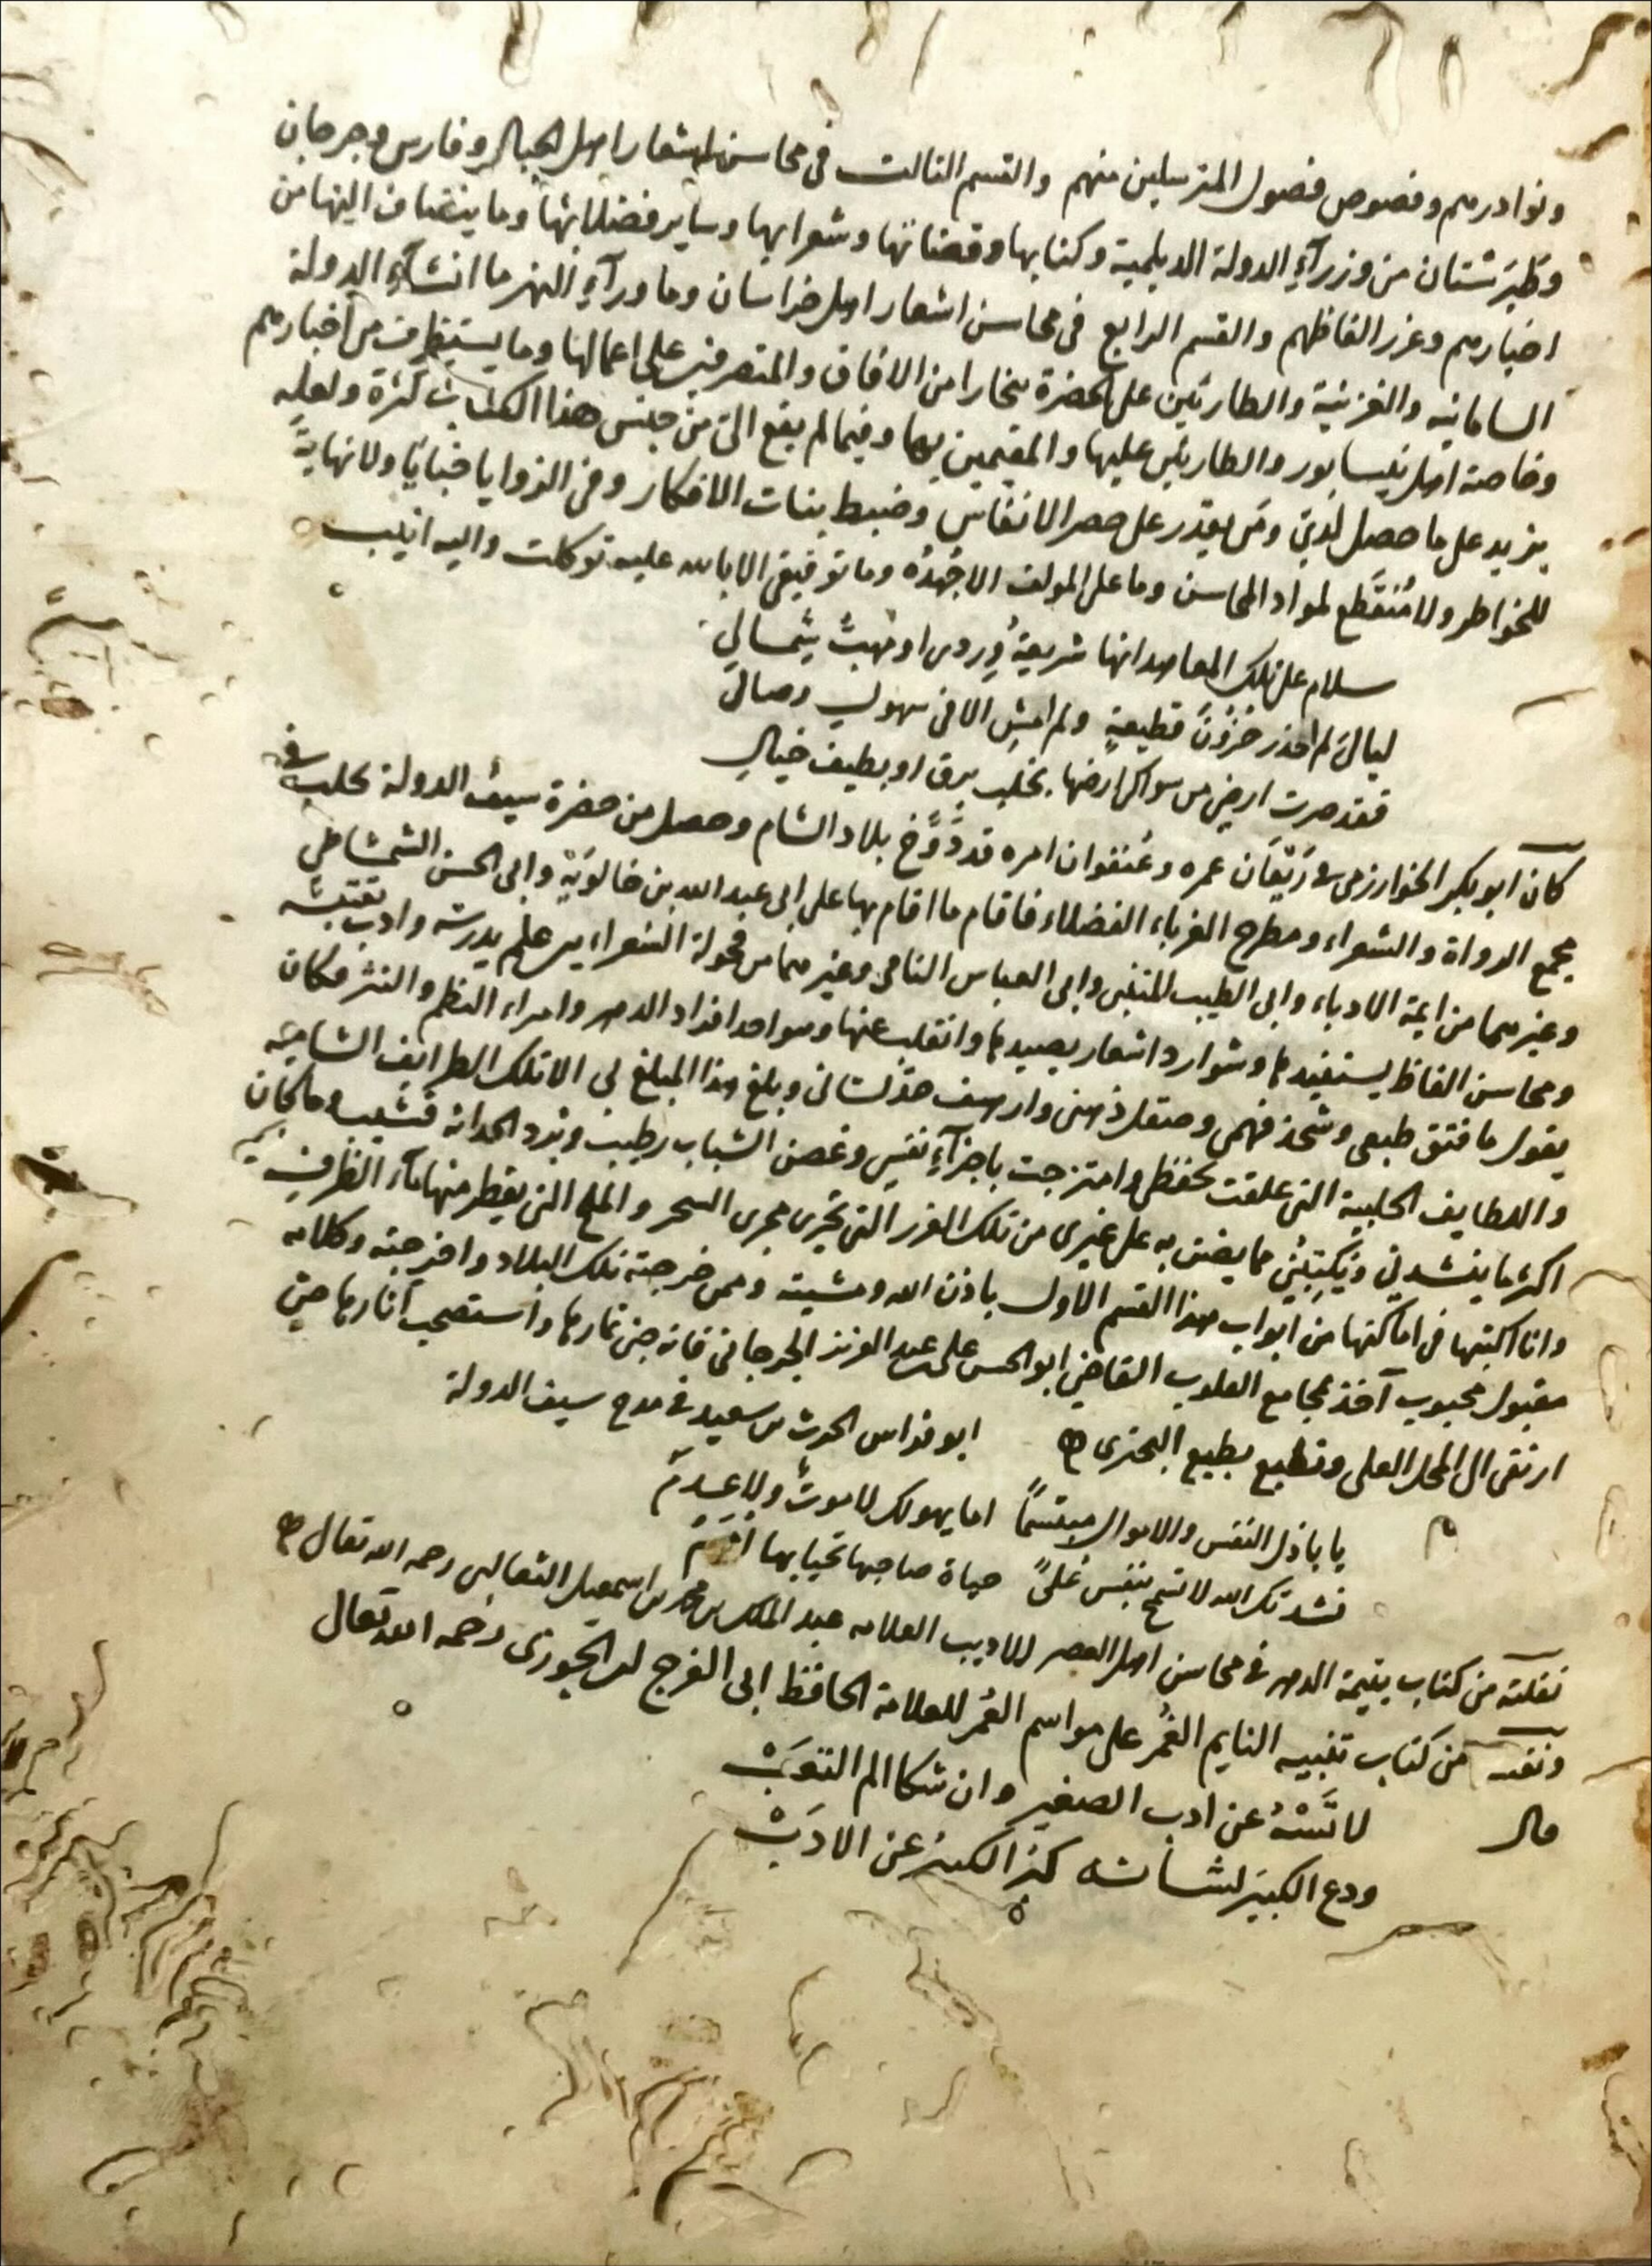 ونوادرهم وفصوص فصول المترسلين منهم والقسم الثالث في محاسن اشعار اهل الجبال وفارس وجرجان
وطَبَرستان من وزرآءِ الدولة الديلمية وكتابها وقضاتها وشعرايها وساير فضلائها وما ينضاف اليها من
اخبارهم وغرر الفاظهم والقسم الرابع في محاسن اشعار اهل خراسان وما ورآءِ النهر ما انشآءِ الدولة
السامانيه والغزنية والطارئين على الحضرة ببخارا من الافاق والمتصرفين على اعمالها وما يستظرف من اخبارهم
وخاصة اهل نيسابور والطارئين عليها والمقيمين بها وفيما لم يقع الىّ من جنس هذا الكتاب كثرة ولعله
يزيد على ما حصل لديّ ومن يقدر على حصر الانفاس وضبط بنات الافكار وفي الزوايا خبايًا ولا نهايةً
للخواطر ولا مُنقَطَع لمواد المحاسن وما على المولف الا جُهْدُه وما توفيقي الا بالله عليه توكلت واليه انيب
سلام على تلك المعاهد انها شريعةُ وِردى او مَهبُّ شِمالي
ليالىَ لم احذر حُزُونَ قطيعةٍ ولم امشِ الا في سهول وصالى
فقد صرت ارضى من سواكن ارضها بخلب برق او بطيف خيال
كان ابو بكر الخوارزمى في رَيْعَان عمره وعُنفوان امره قد دَوَّخ بلاد الشام وحصل من حضرة سيف الدولة بحلب في
مجمع الرواة والشعراء ومطرح الغرباء الفضلاء فاقام ما اقام بها على ابى عبد الله بن خالَوَيْهِ وابى الحسن الشمشاطى
وغيرهما من ايمة الادباء وابى الطيب المتنبى وابى العباس النامى وغيرهما من فحولة الشعراء بين علم يدرسه وادب يقتبسه
ومحاسن الفاظ يستفيدها وشوارد اشعار يصيدها وانقلب عنها وهو احد افراد الدهر وامراء النظم والنثر وكان
يقول ما فتق طبعى وشحذ فهمى وصقل ذهنى وارهف حدّ لسانى وبلغ هذا المبلغ بى الا تلك الطرايف الشاميّه
واللطايف الحلبية التى علقت بحفظى وامتزجت باجزآءِ نفسي وغصن الشباب رطيب وبُرد الحداثة قشيب وما كان
اكثر ما ينشدني ويُكْتِبُني مما يضن به على غيرى من تلك الغرر التى تَجْرى مجرى السحر والملح التى يقطر منها مآء الظرفِ
وانا اكتبها في اماكنها من ابواب هذا القسم الاول باذن الله ومشيته وممن خرجته تلك البلاد واخرجته وكلامه
مقبول محبوب آخذ بمجامع القلوب القاضي ابو الحسن على بن عبد العزيز الجرجانى فانه جنى ثمارها واستصحب آثارها حتى
ارتقى الى المحل العلى وتطبع بطبع البحترى ابو فراس الحرث بن سعيد في مدح سيف الدولة
يا باذل النفس والاموال مبتسمًا اما يهولك لا موتٌ ولا عدمُ
نشدتك الله لا تسمح بنفس عُلىً حياة صاحبها تحيا بها اممُ
نقلته من كتاب يتيمة الدهر في محاسن اهل العصر للاديب العلامه عبد الملك بن محمد بن اسمعيل الثعالبى رحمه الله تعالى
من كتاب تنبيه النايم الغُمْر على مواسم العُمْر للعلامة الحافظ ابى الفرج ابن الجوزى رحمه الله تعالى
قال لا تَسْهُ عن ادب الصغير وان شكا الم التعَبْ
ودع الكبير لشانه كبر الكبير عن الادَبْ